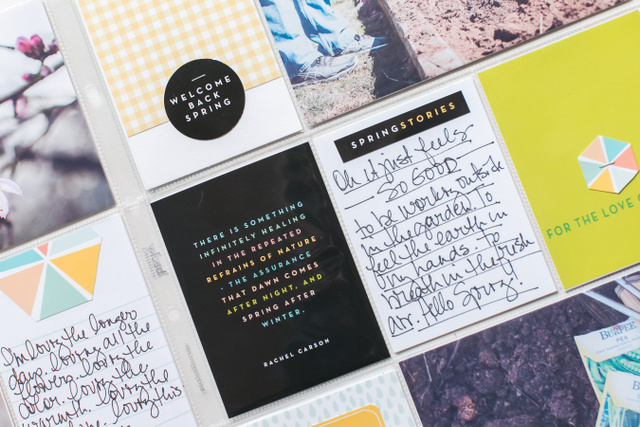 WELCOME
BACK
SPRING
SPRINGSTORIES
Oh it just feels
SO GOOD
to be working outside
in the garden. To
feel the earth in
my hands. To
breath in the fresh
air. Hello Spring!
FOR THE LOVE
THERE IS SOMETHING
INFINITELY HEALING
IN THE REPEATED
REFRAINS OF NATURE
- THE ASSURANCE
THAT DAWN COMES
AFTER NIGHT, AND
SPRING AFTER
WINTER.
RACHEL CARSON
I'm love the longer
days. Loving all the
flowers. Loving the
color. Loving the
warmth. Loving the
Loving this
PEA